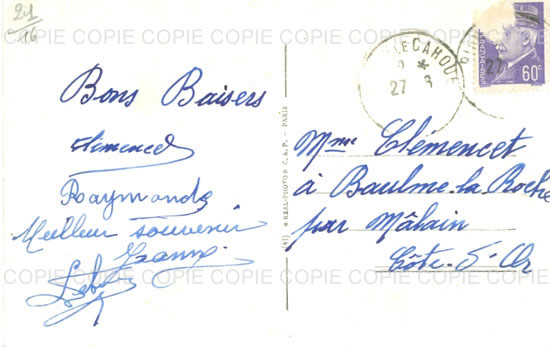 21
16
COPIE COPIE COPIE COPIE COPIE COPIE COPIE
Bons Baisers
Clémencet
Raymonde
Meilleur souvenir
COPIE COPIE COPIE COPIE COPIE COPIE COPIE
« REAL-PHOTO » C.A.P. - PARIS
LECAHOUE
27 8
27
60c
Mme Clémencet
à Baulme-la-Roche
par Mâlain
Côte-d'Or
COPIE COPIE COPIE COPIE COPIE COPIE COPIE